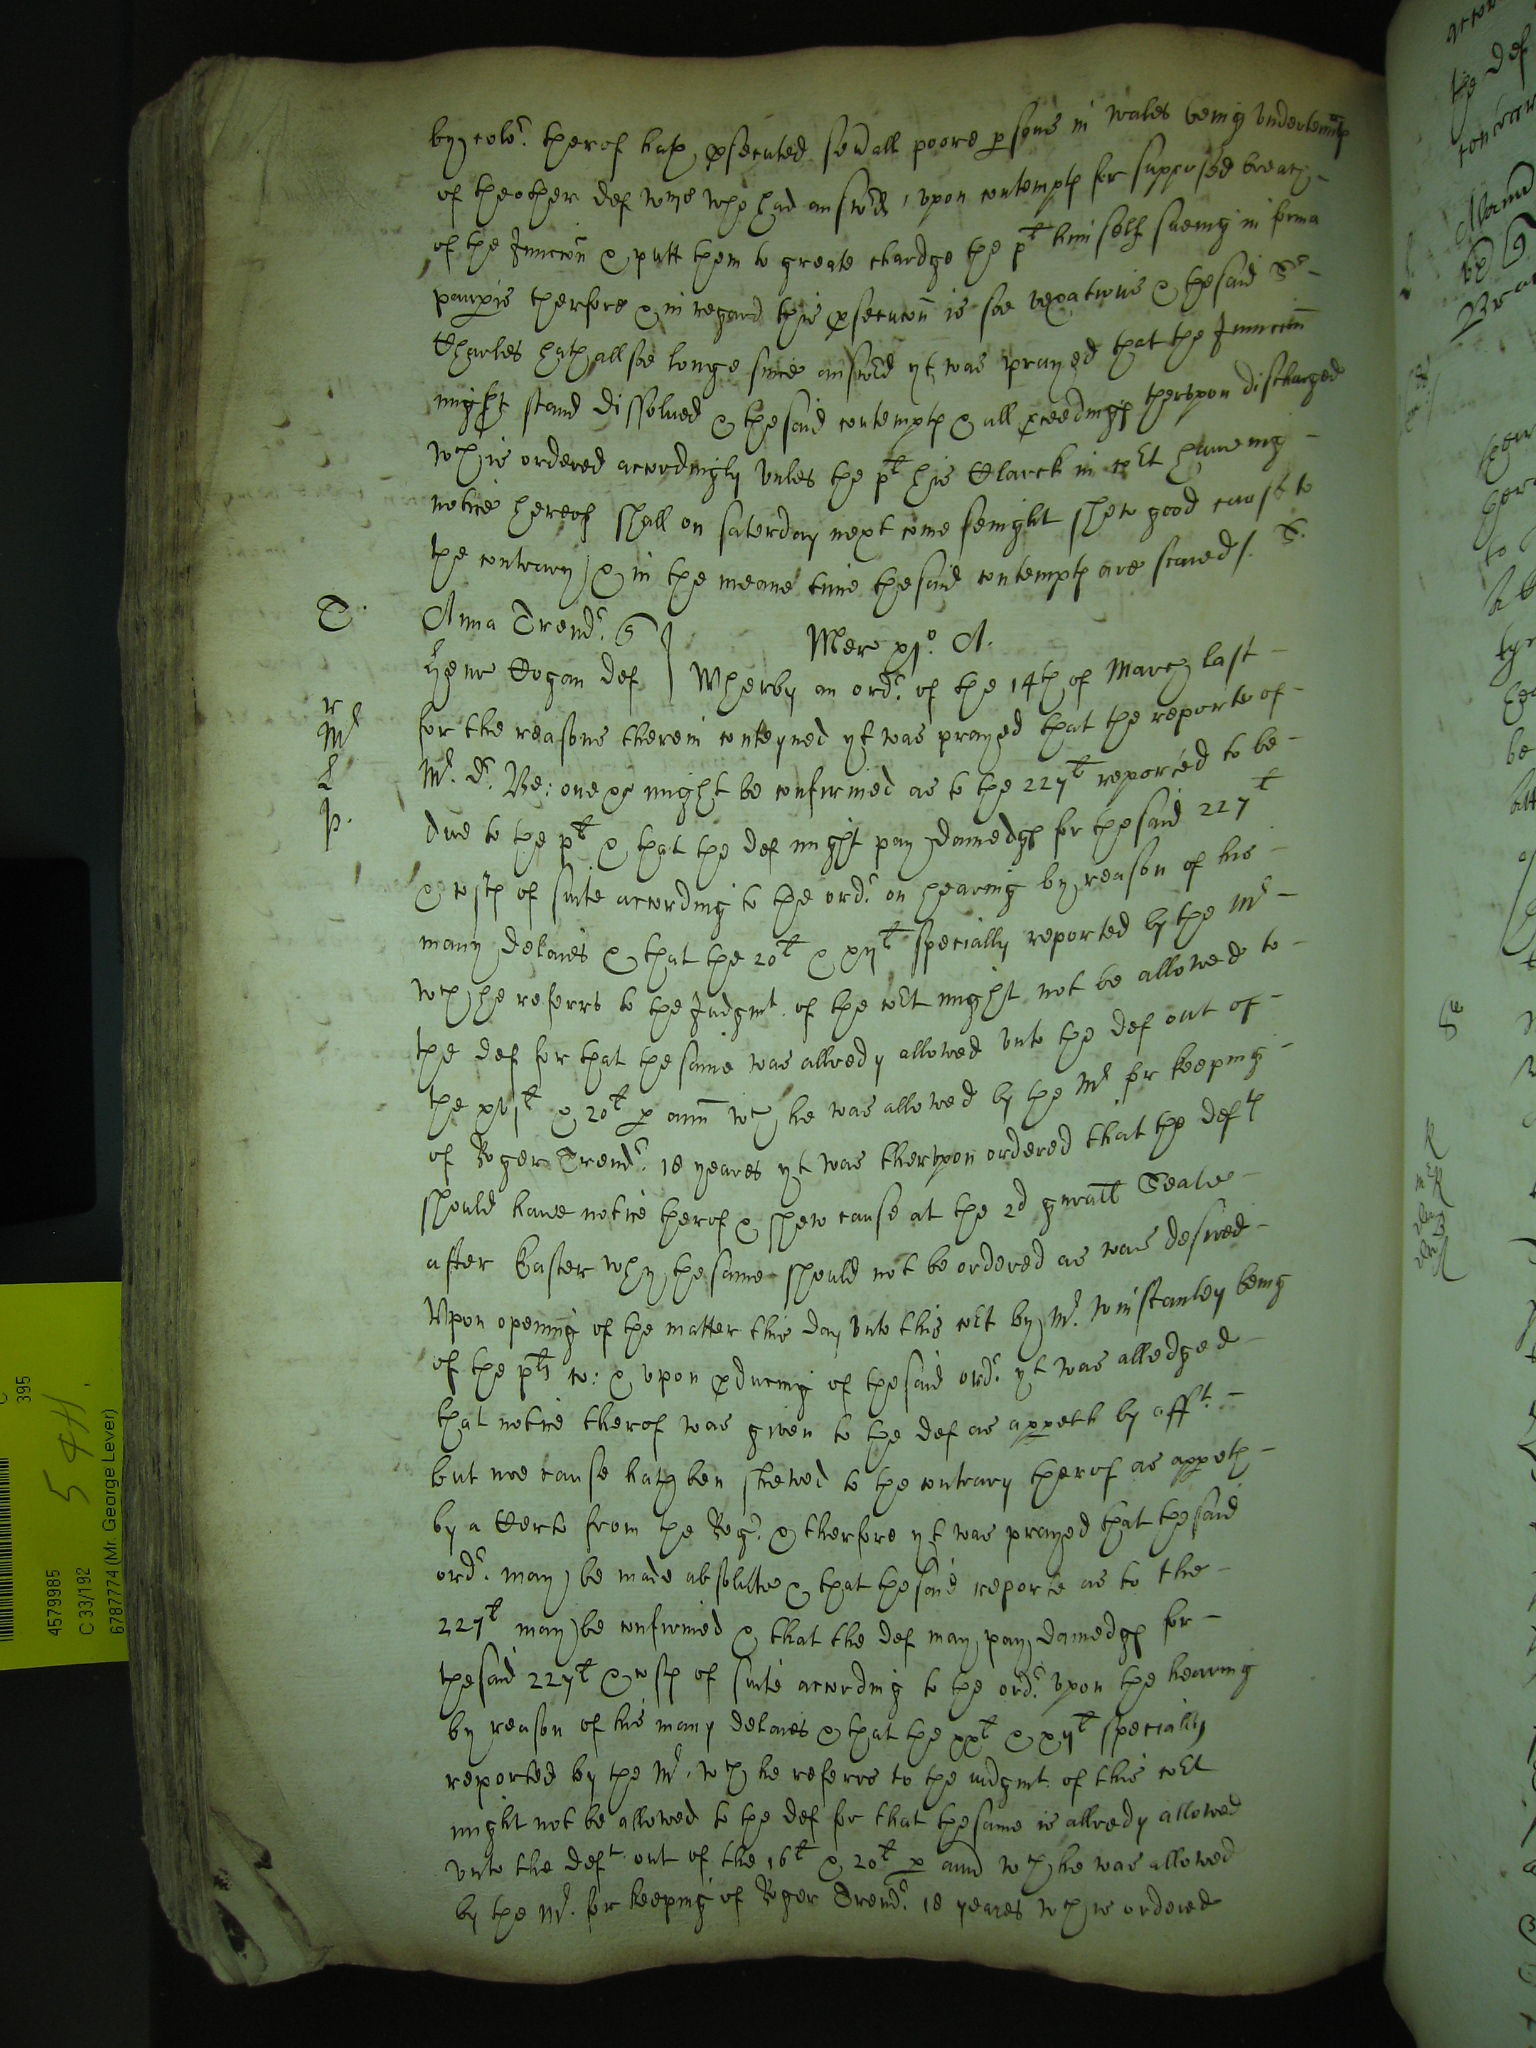 by colo:r therof hath psecuted sevall poore psons in Wales being undertennts
of the other def w:mes who had answed, upon contempts for supposed breach
of the Iniuccon & putt them to greate chardge the p:lt himself sueing in forma
paupis therfore & in regard this psecucon is soe vexatious & the said S:r
Charles hath allsoe longe since answed yt was prayed that the Iniuccon
might stand dissolved & the said contempts & all pceedings therupon discharged
w:ch is ordered accordingly unles the p:lt his Clarck in co:rt haveing
notice hereof shall on saterday next come senight shew good cause to
the contrary & in the meane time the said contempts are staied /. S.
T. Anna Trend:r q
Henr Cogan def Mer xj:o A.
Wherby an ord:r of the 14th of March last
r for the reasons therein conteyned yt was prayed that the reporte of
M:r M:r d:r might be confirmed as to the 227:l reported to be
L due to the p:lt & that the def might pay damedgs for the said 227:l
p. & costs of suite according to the ord:r on hearing by reason of his
many delaies & that the 20:l & xij:l specially reported by the M:r
w:ch he referrs to the Iudgm:t of the co:rt might not be allowed to
the def for that the same was allredy allowed unto the def out of
the xvj:l & 20:l p ann w:ch he was allowed by the M:r for keeping
of Roger Trend:r 18 yeares yt was therupon ordered that the def:t
should have notice therof & shew cause at the 2d gnrall Seale
after Easter why the same should not be ordered as was desired
Upon opening of the matter this day unto this co:rt by M:r Winstanley being
of the p:lts co: & upon pducing of the said ord:r yt was alledged
that notice therof was given to the def as appeth by aff:t
but noe cause hath ben shewed to the contrary therof as appeth
by a Certe from the Reg:r & therfore yt was prayed that the said
ord:r may be made absolute & that the said reporte as to the
227:l may be confirmed & that the def may pay damedgs for
the said 227:l & costs of suite according to the ord:r upon the hearing
by reason of his many delaies & that the xx:l & xij:l specially
reported by the M:r w:ch he referrs to the iudgm:t of this co:rt
might not be allowed to the def for that the same is allredy allowed
unto the def:t out of the 16:l & 20:l p ann w:ch he was allowed
by the M:r for keeping of Roger Trend:r 18 yeares w:ch is ordered
395
5 4H.
4579985
C 33/192
6787774 (Mr. George Lever)